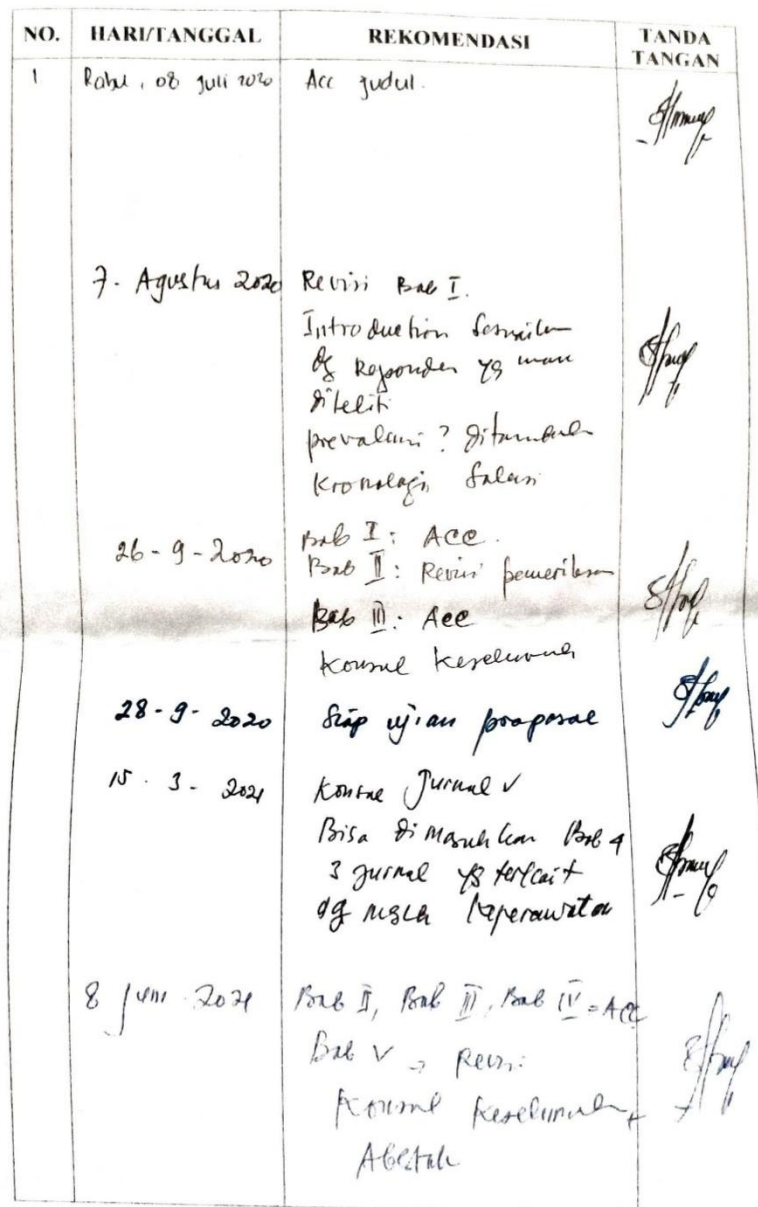 NO. HARI/TANGGAL REKOMENDASI TANDA TANGAN
1 Rabu, 08 Juli 2020 Acc judul.
7 - Agustus 2020 Revisi Bab I.
Introduction sesuaikan
dg Responden yg mau
diteliti
prevalensi? ditambahkan
Kronologis
26 - 9 - 2020 Bab I : ACC.
Bab II : Revisi
Bab III : Acc
Konsul Keseluruhan
28 - 9 - 2020 Siap ujian proposal
15 - 3 - 2021 Konsul Jurnal V
Bisa di masukkan Bab 4
3 jurnal yg terkait
dg keperawatan
8 Juni 2021 Bab II, Bab III, Bab IV = ACC
Bab V → Revisi
Konsul Keseluruhan +
Abstrak